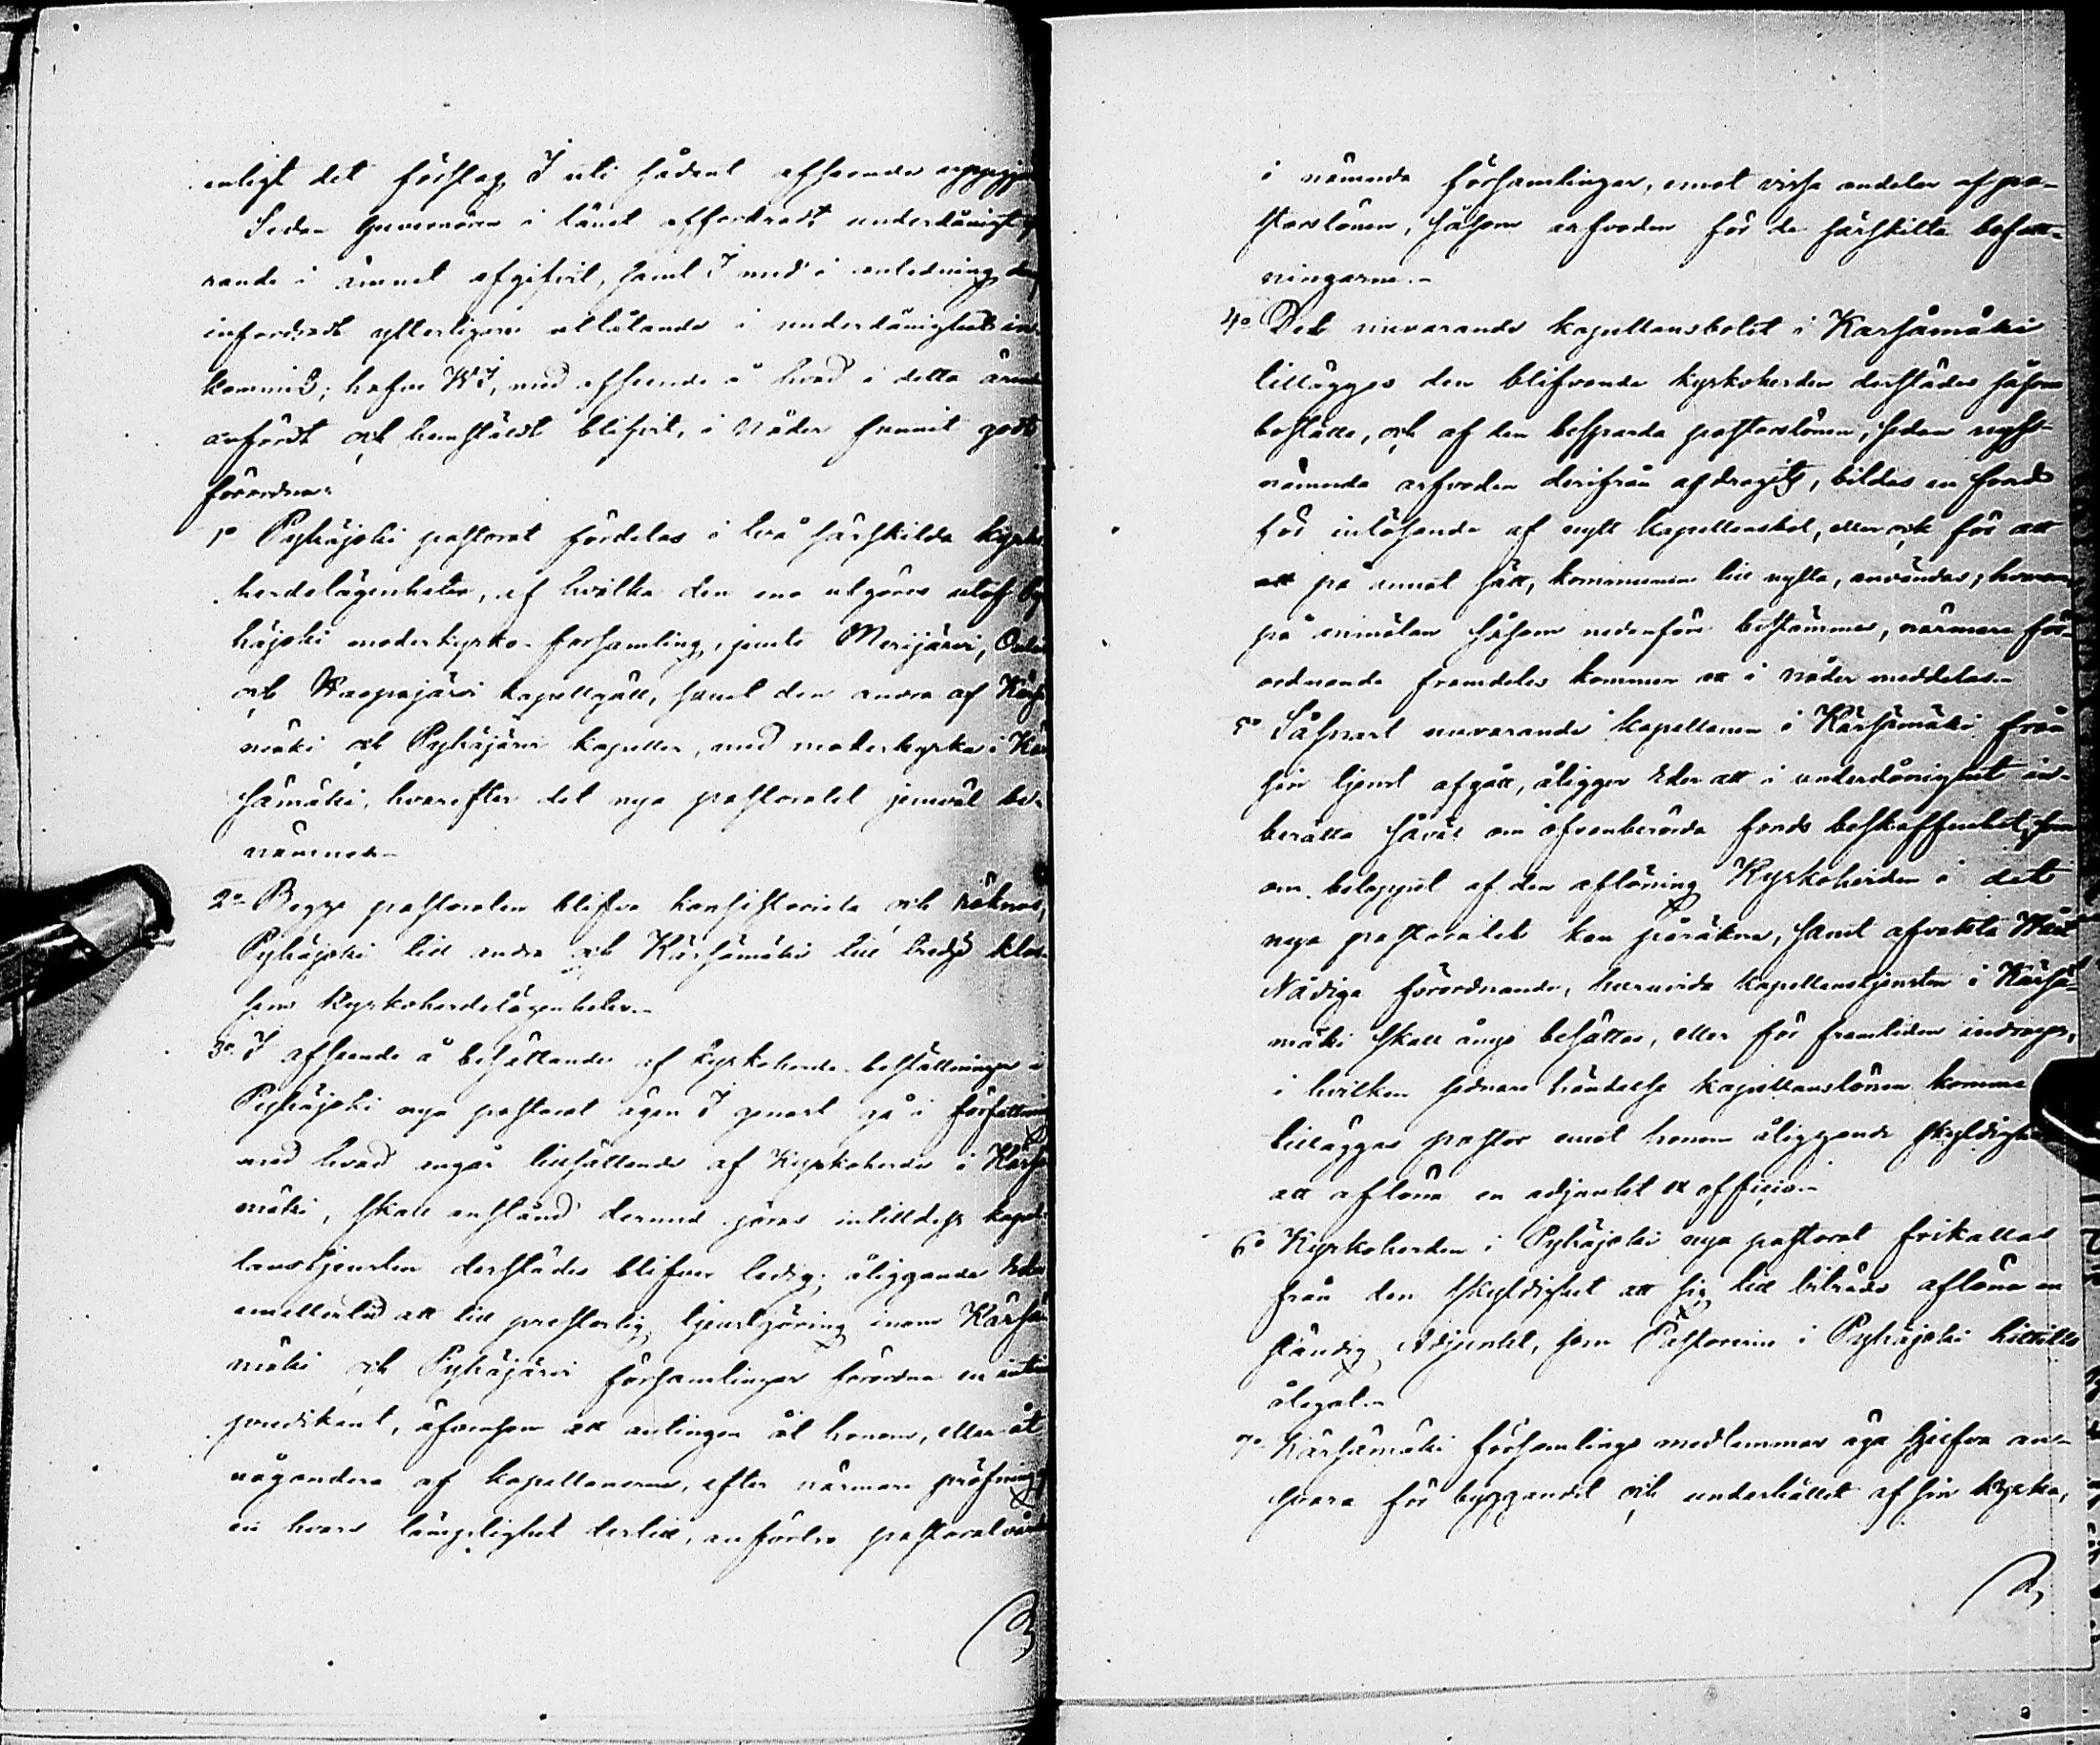 enligt det förslag I uti sådant afseende uppgjort
Sedan Guvernören i länet affordradt underdånigt
rande i ämnet afgifvit, samt I med i anledning
infordradt ytterligare utlåtande i underdånighet in-
kommit; hafve Wi, med afseende å hvad i detta ärende
anfördt och hemstäldt blifvit, i Nåder funnit godt
förordna:
1o Pyhäjoki pastorat fördelas i två särskilda kyrko-
herdelägenheter, af hvilka den ena utgöres utaf Py-
häjoki moderkyrko-församling, jemte Merijärvi, Oulais
och Haapajärvi kapellgäll, samt den andra af Kärsä-
mäki och Pyhäjärvi kapeller, med moderkyrka i Kär-
sämäki, hvarefter det nya pastoratet jemväl be-
nämnes.-
2o Begge pastoraten blifva konsistoriela och räknas,
Pyhäjoki till andra och Kärsämäki till tredje klas-
sens Kyrkoherdelägenheter.-
3o I afseende å besättande af Kyrkoherde-beställningen i
Pyhäjoki nya pastorat ägen I genast gå i författning
med hvad angår tillsättande af Kyrkoherde i Kärsä-
mäki, skall anstånd dermed göras intilldess kapel-
lanstjensten derstädes blifver ledig; åliggande Eder
emellertid att till presterlig tjenstgöring inom Kärsä-
mäki och Pyhäjärvi församlingar förordna en
predikant, äfvensom att antingen åt honom, eller åt
någondera af kapellanerne, efter närmare pröfning af
en hvars lämplighet dertill, anförtro pastoralvården
i nämnde församlingar, emot vissa andelar af pa-
storslönen, såsom arfvoden för de särskilta befatt-
ningarne.-
4o Det nuvarande kapellansbolet i Kärsämäki
tillägges den blifvande kyrkoherden derstädes såsom
boställe, och af den besparda pastorslönen, sedan nyss-
nämnda arfvoden derifrån afdragits, bildas en fond
för inlösande af nytt kapellansbol, eller ock för att
att på annat sätt, kommunen till nytta, användas; hvarom
på anmälan såsom nedanföre bestämmes, närmare för-
ordnande framdeles kommer att i nåder meddelas.-
5o Såsnart nuvarande kapellanen i Kärsämäki från
sin tjenst afgått, åligger Eder att i underdånighet in-
berätta såväl om ofvanberörde fonds beskaffenhet, som
om beloppet af den aflöning Kyrkoherden i det
nya pastoratet kan påräkna, samt afvakta Wårt
Nådiga förordnande, huruvida kapellanstjensten i Kärsä-
mäki skall ånyo besättas, eller för framtiden indragas,
i hvilken sednare händelse kapellanslönen komme
tilläggas pastor emot honom åliggande skyldighet
att aflöna en adjunkt ex officio.-
6o Kyrkoherden i Pyhäjoki nya pastorat frikallas
från den skyldighet att sig till biträde aflöna en
ständig Adjunkt, som Pastorerne i Pyhäjoki hittills
ålegat.-
7o Kärsämäki församlings medlemmar äga sjelfva an-
svara för byggandet och underhållet af sin kyrka,